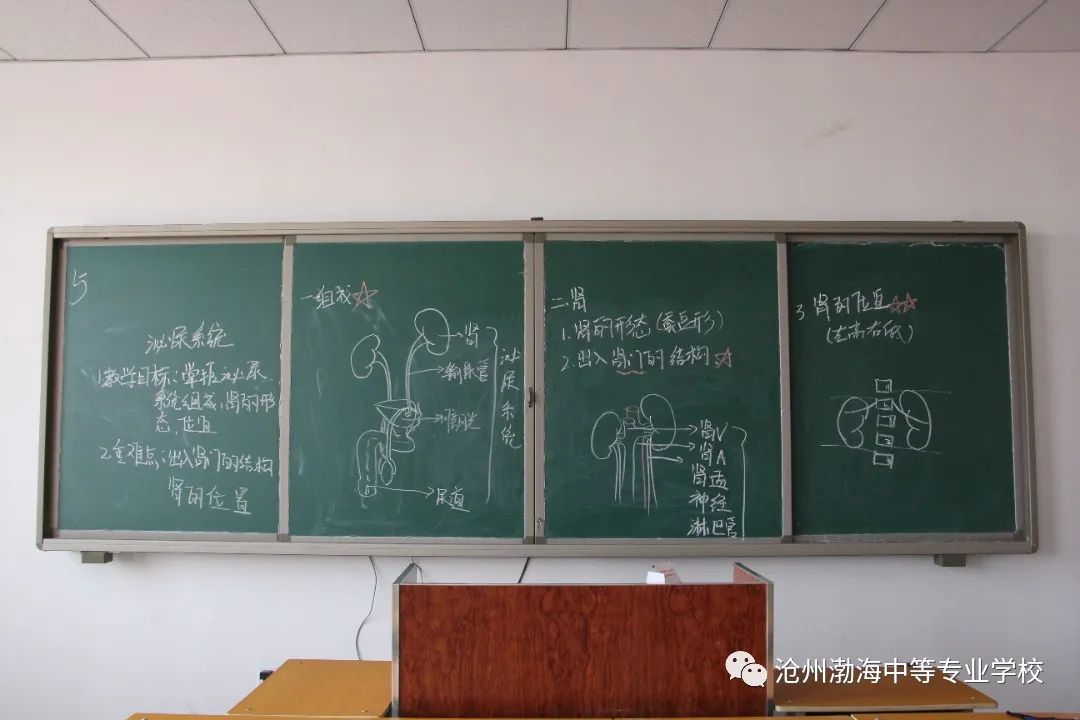 5
泌尿系统
1.教学目标:掌握泌尿
系统组成,肾的形
态,位置
2.重难点:出入肾门的结构
肾的位置
一组成☆
肾
输尿管
膀胱
尿道
泌尿系统
二.肾
1.肾的形态(蚕豆形)
2.出入肾门的结构☆
肾V
肾A
肾盂
神经
淋巴管
3.肾的位置☆☆
(左高右低)
沧州渤海中等专业学校